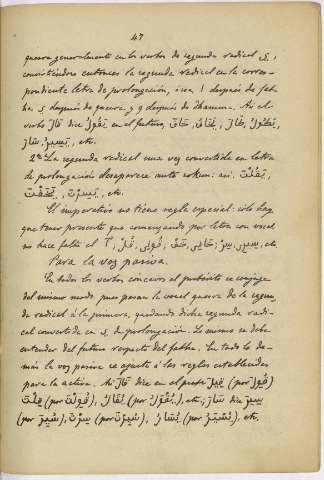 47
quesra generalmente en los verbos de segunda radical ي,
convirtiéndose entonces la segunda radical en la corres-
pondiente letra de prolongación, ó sea ا después de fat-
ha, ي después de quesra y و después de dhamma. Así el
verbo قَالَ dice يَقُولُ en el futuro, خَافَ، يَخَافُ، طَالَ، يَطُولُ،
سَارَ، يَسِيرُ, etc.
2ª La segunda radical una vez convertida en letra
de prolongación desaparece ante sokun: así,
etc.
El imperativo no tiene regla especial: solo hay
que tener presente que comenzando por letra con vocal
no hace falta el ا, قُلْ، قُولِي، خَفْ، خَافِي، سِرْ، سِيرِي, etc
Para la voz pasiva.
En todos los verbos cóncavos el pretérito se conjuga
del mismo modo pues pasan la vocal quesra de la segun-
da radical á la primera, quedando dicha segunda radi-
cal convertida en ي de prolongación. Lo mismo se debe
entender del futuro respecto del fatha. En todo lo de-
más la voz pasiva se ajusta á las reglas establecidas
para la activa. Así قَالَ dice en el pret. قِيلَ (por قُوِلَ)
قِلْتَ (por قُوِلْتَ), يُقَالُ (por يُقْوَلُ), etc; سَارَ dice سِيرَ
(por سُيِرَ), سِرْتَ (por سُيِرْتَ), يُسَارُ (por يُسْيَرُ), etc.